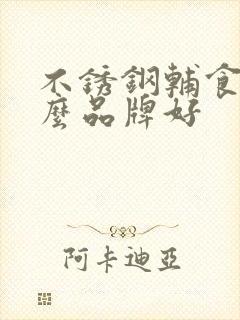 不锈鋼輔食
麼品牌好
阿卡迪亞